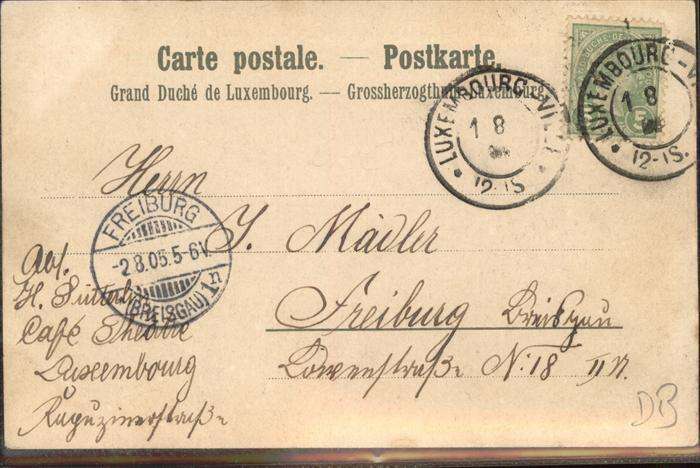 Carte postale. — Postkarte.
Grand Duché de Luxembourg. — Grossherzogthum Luxemburg.
LUXEMBOURG-VILLE
1 8
12-1S.
LUXEMBOURG-V
1 8
12-1S.
Herrn
J. Mädler
Freiburg Breisgau
Löwenstraße N: 18 II
FREIBURG
-2.8.05.5-6N.
(BREISGAU) 1n
Abs.
H.
Café Théâtre
Luxembourg
Kapuzinerstraße
DB